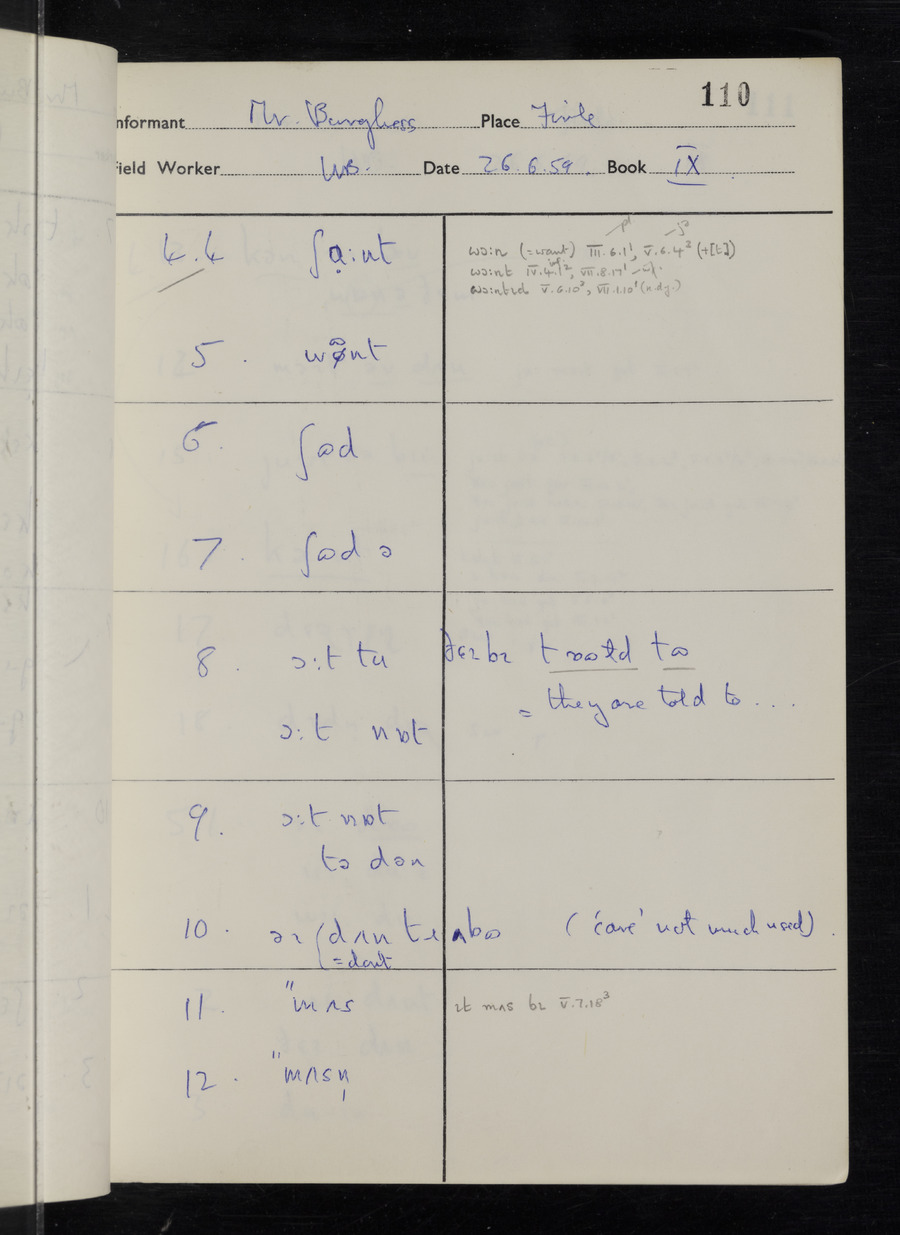 110
nformant Mr. Burghess Place Firle
ield Worker WB. Date 26.6.59. Book IX
4.4 ʃɑ:nt wɔ:n (=want) III.6.1¹, V.6.4² (+[t])
wɔ:nt IV.4.1², VII.8.17¹ inf.
wɔ:ntɪd V.6.10³, VII.1.10¹
5. wɒnt
6. ʃɷd
7. ʃɷd ə
8. ɔ:t tu ðɛɪ bɪ tɔɷld tɷ
= they are told to ...
ɔ:t nɒt
9. ɔ:t nɒt
tə dɷn
10. əɪ dʌn tɛɪ ʌbɷ ('care' not much used).
= dont
11. "mʌs ɪt mʌs bɪ V.7.18³
12. "mʌsn̩